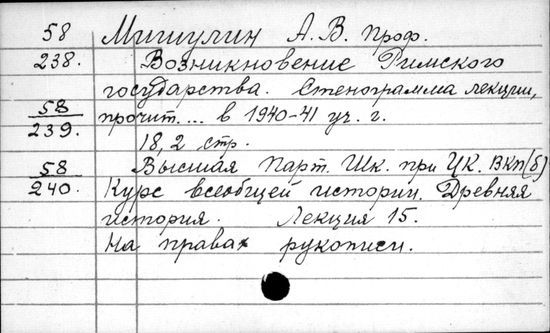 58 Мишулин А. В. проф.
238. Возникновение Римского
государства. Стенограмма лекции,
58 прочит. ... в 1940-41 уч. г.
239.
18, 2 стр.
58 Высшая Парт. Шк. при ЦК. ВКП(б)
240. Курс всеобщей истории. Древняя
история. Лекция 15.
На правах рукописи.